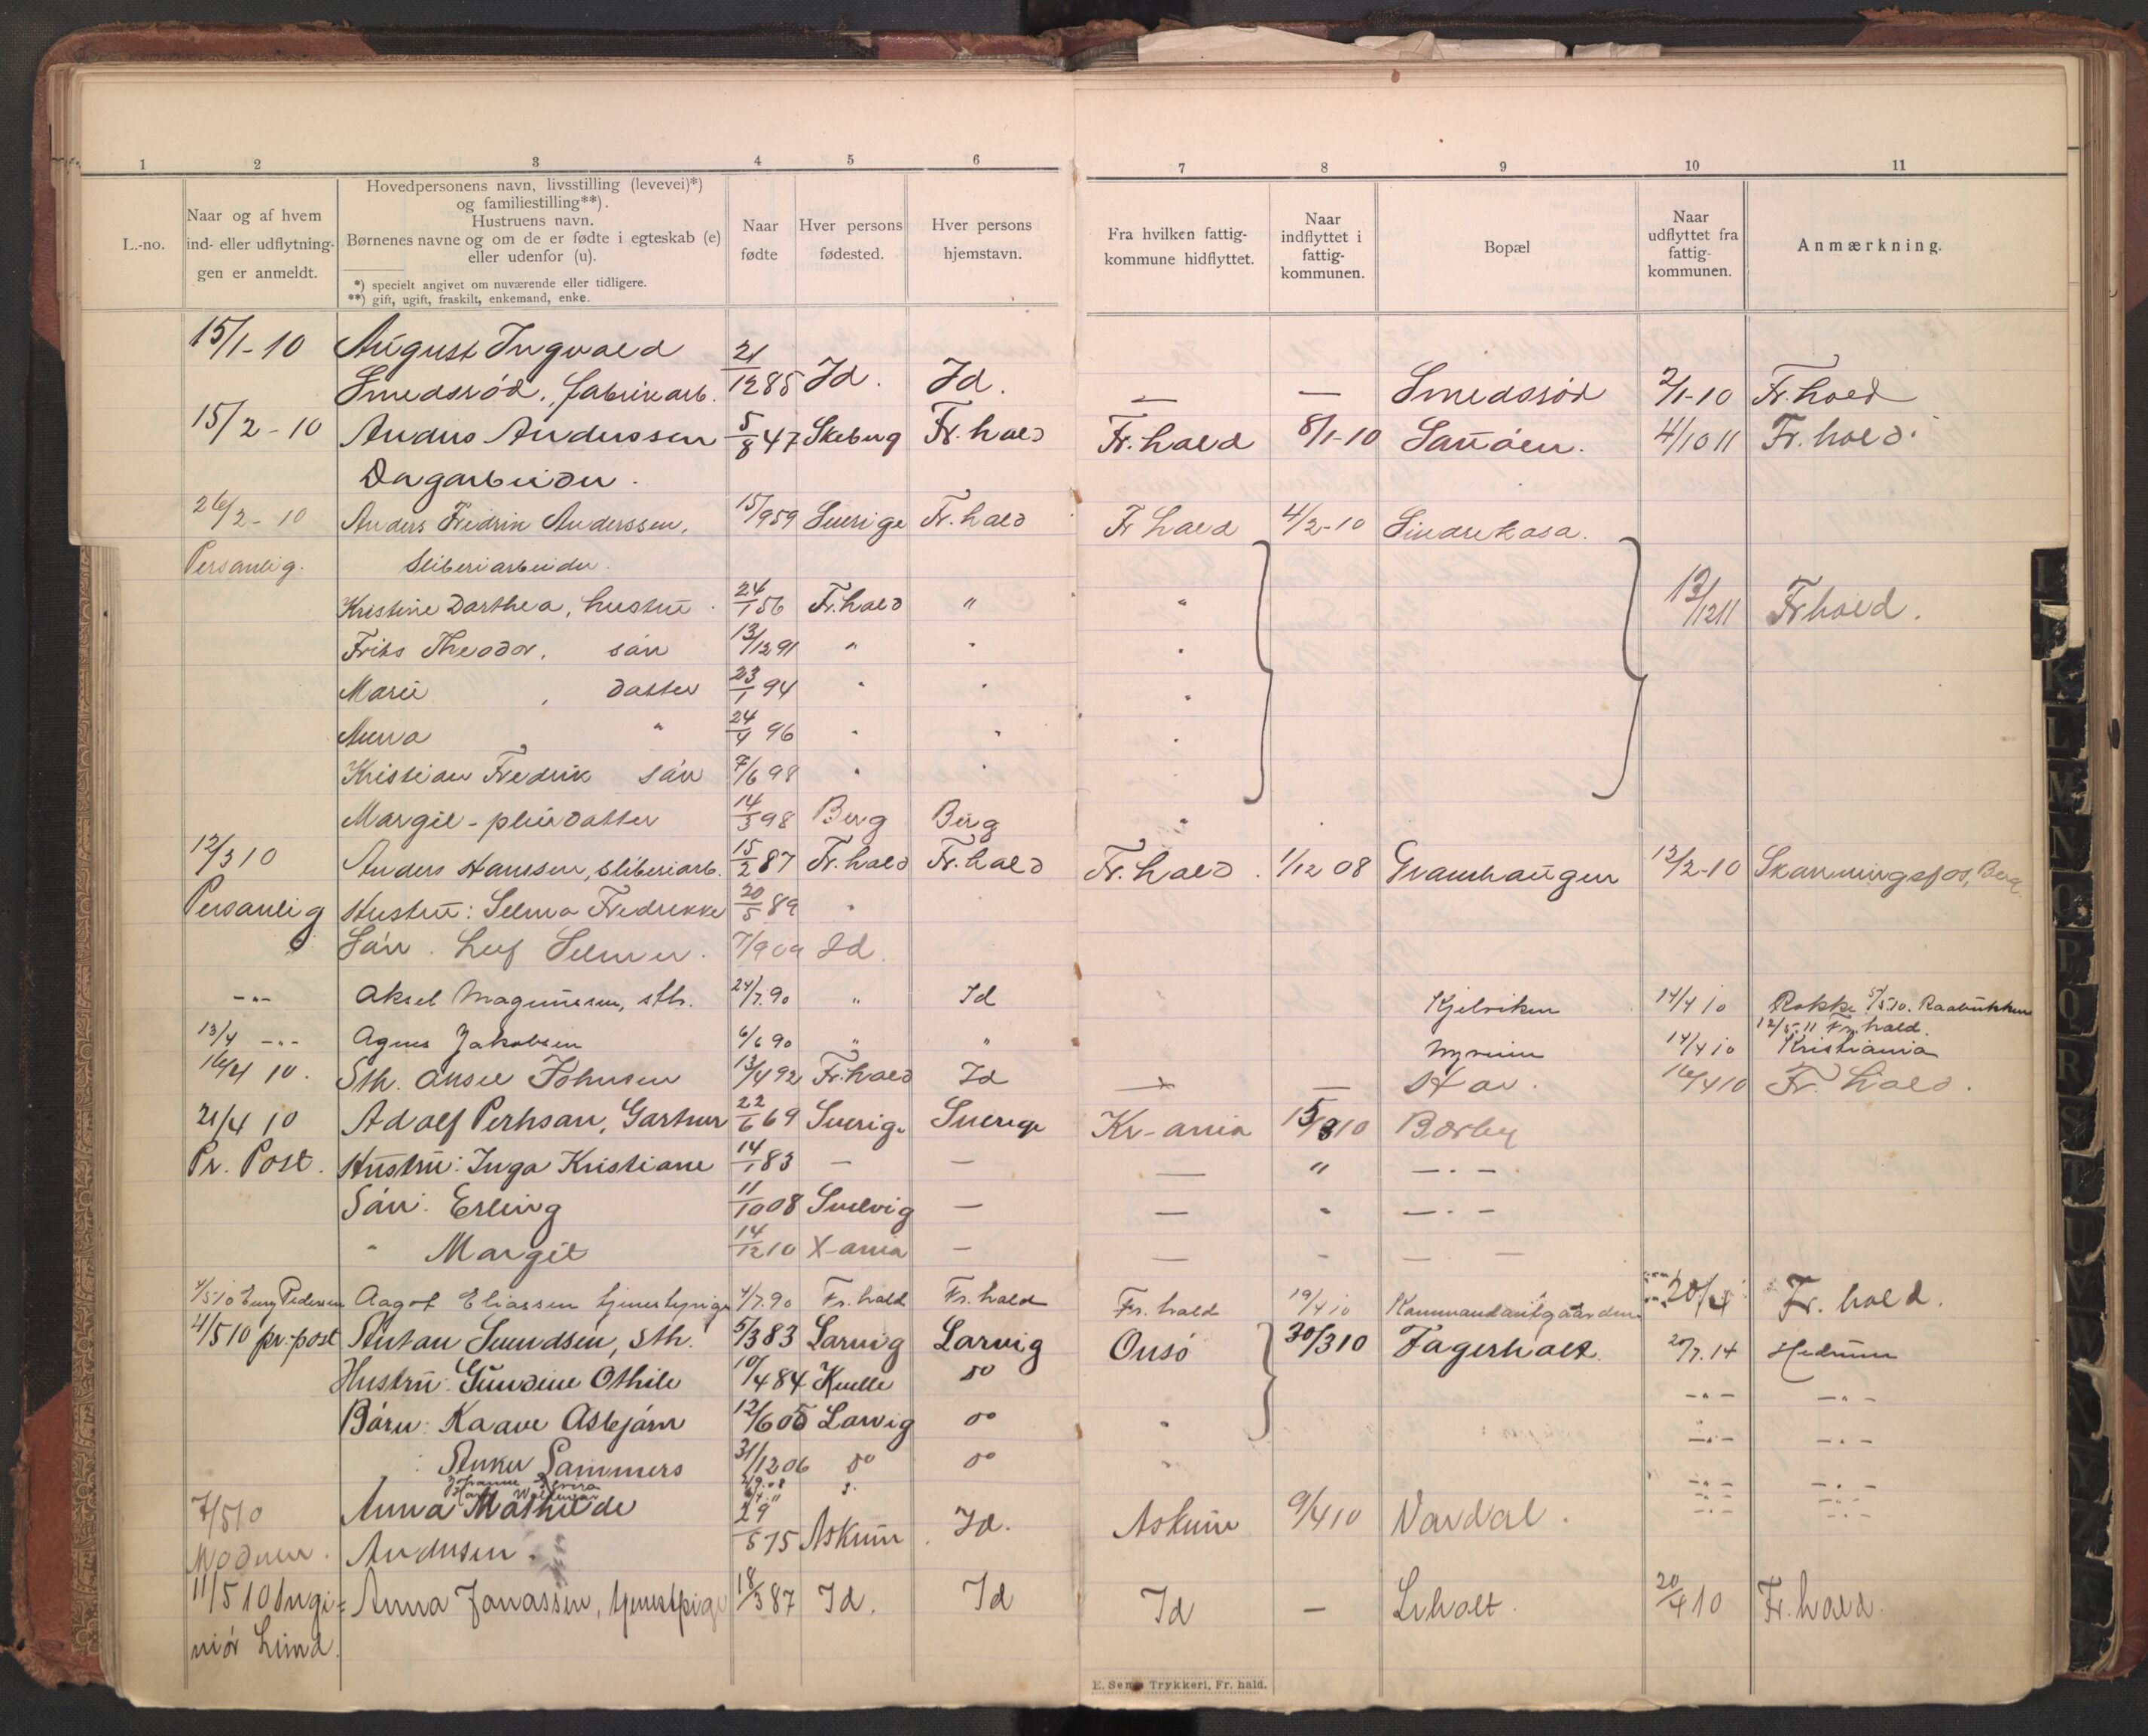 1 2 3 4 5 6 7 8 9 10 11
L.-no.
Naar og af hvem
ind- eller udflytnin-
gen er anmeldt.
Hovedpersonens navn, livsstilling (levevei)*)
og familiestilling**).
Hustruens navn.
Børnenes navne og om de er fødte i egteskab (e)
eller udenfor (u).
*) specielt angivet om nuværende eller tidligere.
**) gift, ugift, fraskilt, enkemand, enke.
Naar
fødte
Hver persons
fødested.
Hver persons
hjemstavn.
Fra hvilken fattig-
kommune hidflyttet.
Naar
indflyttet i
fattig-
kommunen.
Bopæl
Naar
udflyttet fra
fattig-
kommunen.
Anmærkning.
15/1-10 August Ingvald 21
Smedsrød, fabrikarb. 12 85 Id. Id. — — Smedsrød 2/1-10 Fr.hald
15/2-10 Anders Anderssen 5/8 47 Skeberg Fr. hald Fr. hald 8/1-10 Sauøen. 4/10 11 Fr. hald.
Dagarbeider.
26/2-10 Anders Fredrik Anderssen, 15/9 59 Sverige Fr. hald Fr hald 4/2-10
Personlig. Sliberiarbeider.
Kristine Dorthea, hustru. 24/1 56 Fr.hald " " 13/12 11 Fr hald.
Frits Theodor, søn 13/12 91 " " "
Marie , datter 23/1 94 " " "
Anna " 24/4 96 " " "
Kristian Fredrik søn 7/6 98 " "
Margit - pleiedatter 14/3 98 Berg Berg "
12/3 10 Anders Hanssen, sliberiarb. 15/2 87 Fr. hald Fr. hald Fr. hald. 1/12 08 Granhaugen 12/2-10 Skanningsfos, Berg.
Personlig Hustru: Selma Fredrikke 20/5 89 "
Søn. Leif Selmer. 7/9 09 Id.
-"- Aksel Magnussen, sth. 24/7.90 " Id Kjelviken 14/4 10 Rokke 5/5.10. Raabukken
12/5.11 Fr. hald.
13/4 -"- Agnes Jakobsen 6/6 90 " " 14/4 10 Kristiania
16/4 10. Sth. Aksel Johnsen 13/4 92 Fr.hald Id — — 16/4 10 Fr. hald.
21/4 10 Adolf Perhson, Gartner 22/6 69 Sverige Sverige Kr-ania 15/3 10 Børby
Pr. Post. Hustru: Inga Kristiane 14/1 83 — — — " —"—
Søn: Erling 11/10 08 Svelvig — — " —"—
" Margit 14/12 10 X-ania — — - — —
4/5 10 Pedersen Aagot Eliassen tjenestepige 4/7.90 Fr. hald Fr. hald Fr. hald 19/4 10 Kommandantgaarden 20/4 Fr. hald.
4/5 10 pr. post Anton Svendsen, sth. 5/3 83 Larvig Larvig Onsø 30/3 10 Fagerholt 20/7.14 Hedrum
Hustru: Gundine Othile 10/4 84 Kvelle do -"- -"-
Børn: Kaare Asbjørn 12/6 05 Larvig do " -"- -"-
: Anker Sammers 31/12 06 do do " -"- -"-
7/5 10 Anna Mathilde 29
Andersen. 5 75 Askum Id. Askum 9/4 10 Nordal.
11/5 10 Ingi= Anna Jonassen, tjenestpige 18/3 87 Id. Id Id — Liholt. 20/4 10 Fr. hald.
niør Lund.
E. Sems Trykkeri, Fr. hald.